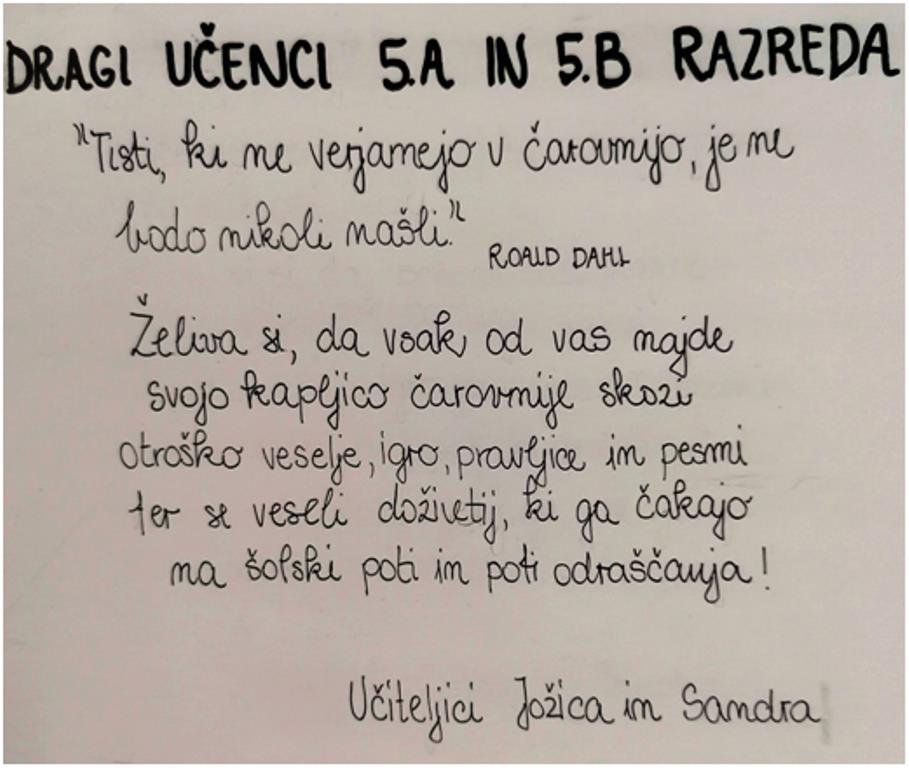 DRAGI UČENCI 5.A IN 5.B RAZREDA
"Tisti, ki ne verjamejo v čarovnijo, je ne
bodo nikoli našli."
ROALD DAHL
Želiva si, da vsak od vas najde
svojo kapljico čarovnije skozi
otroško veselje, igro, pravljice in pesmi
ter se veseli doživetij, ki ga čakajo
na šolski poti in poti odraščanja!
Učiteljici Jožica in Sandra